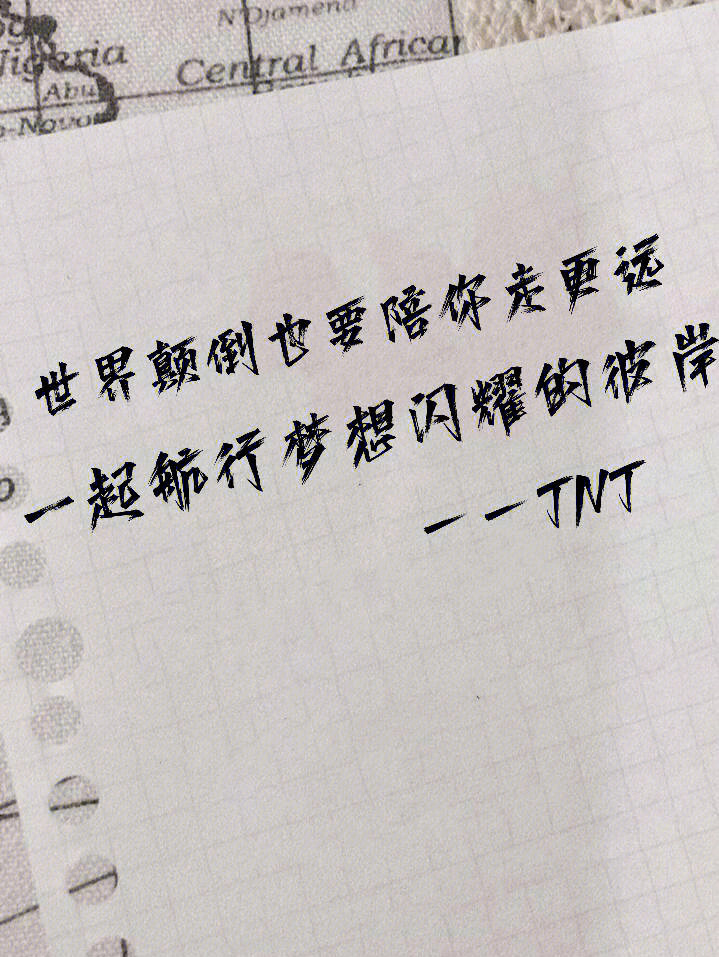 N'Djamena
Nigeria
Central African
Abu
o-Novo
世界颠倒也要陪你走更远
一起航行梦想闪耀的彼岸
——TNT